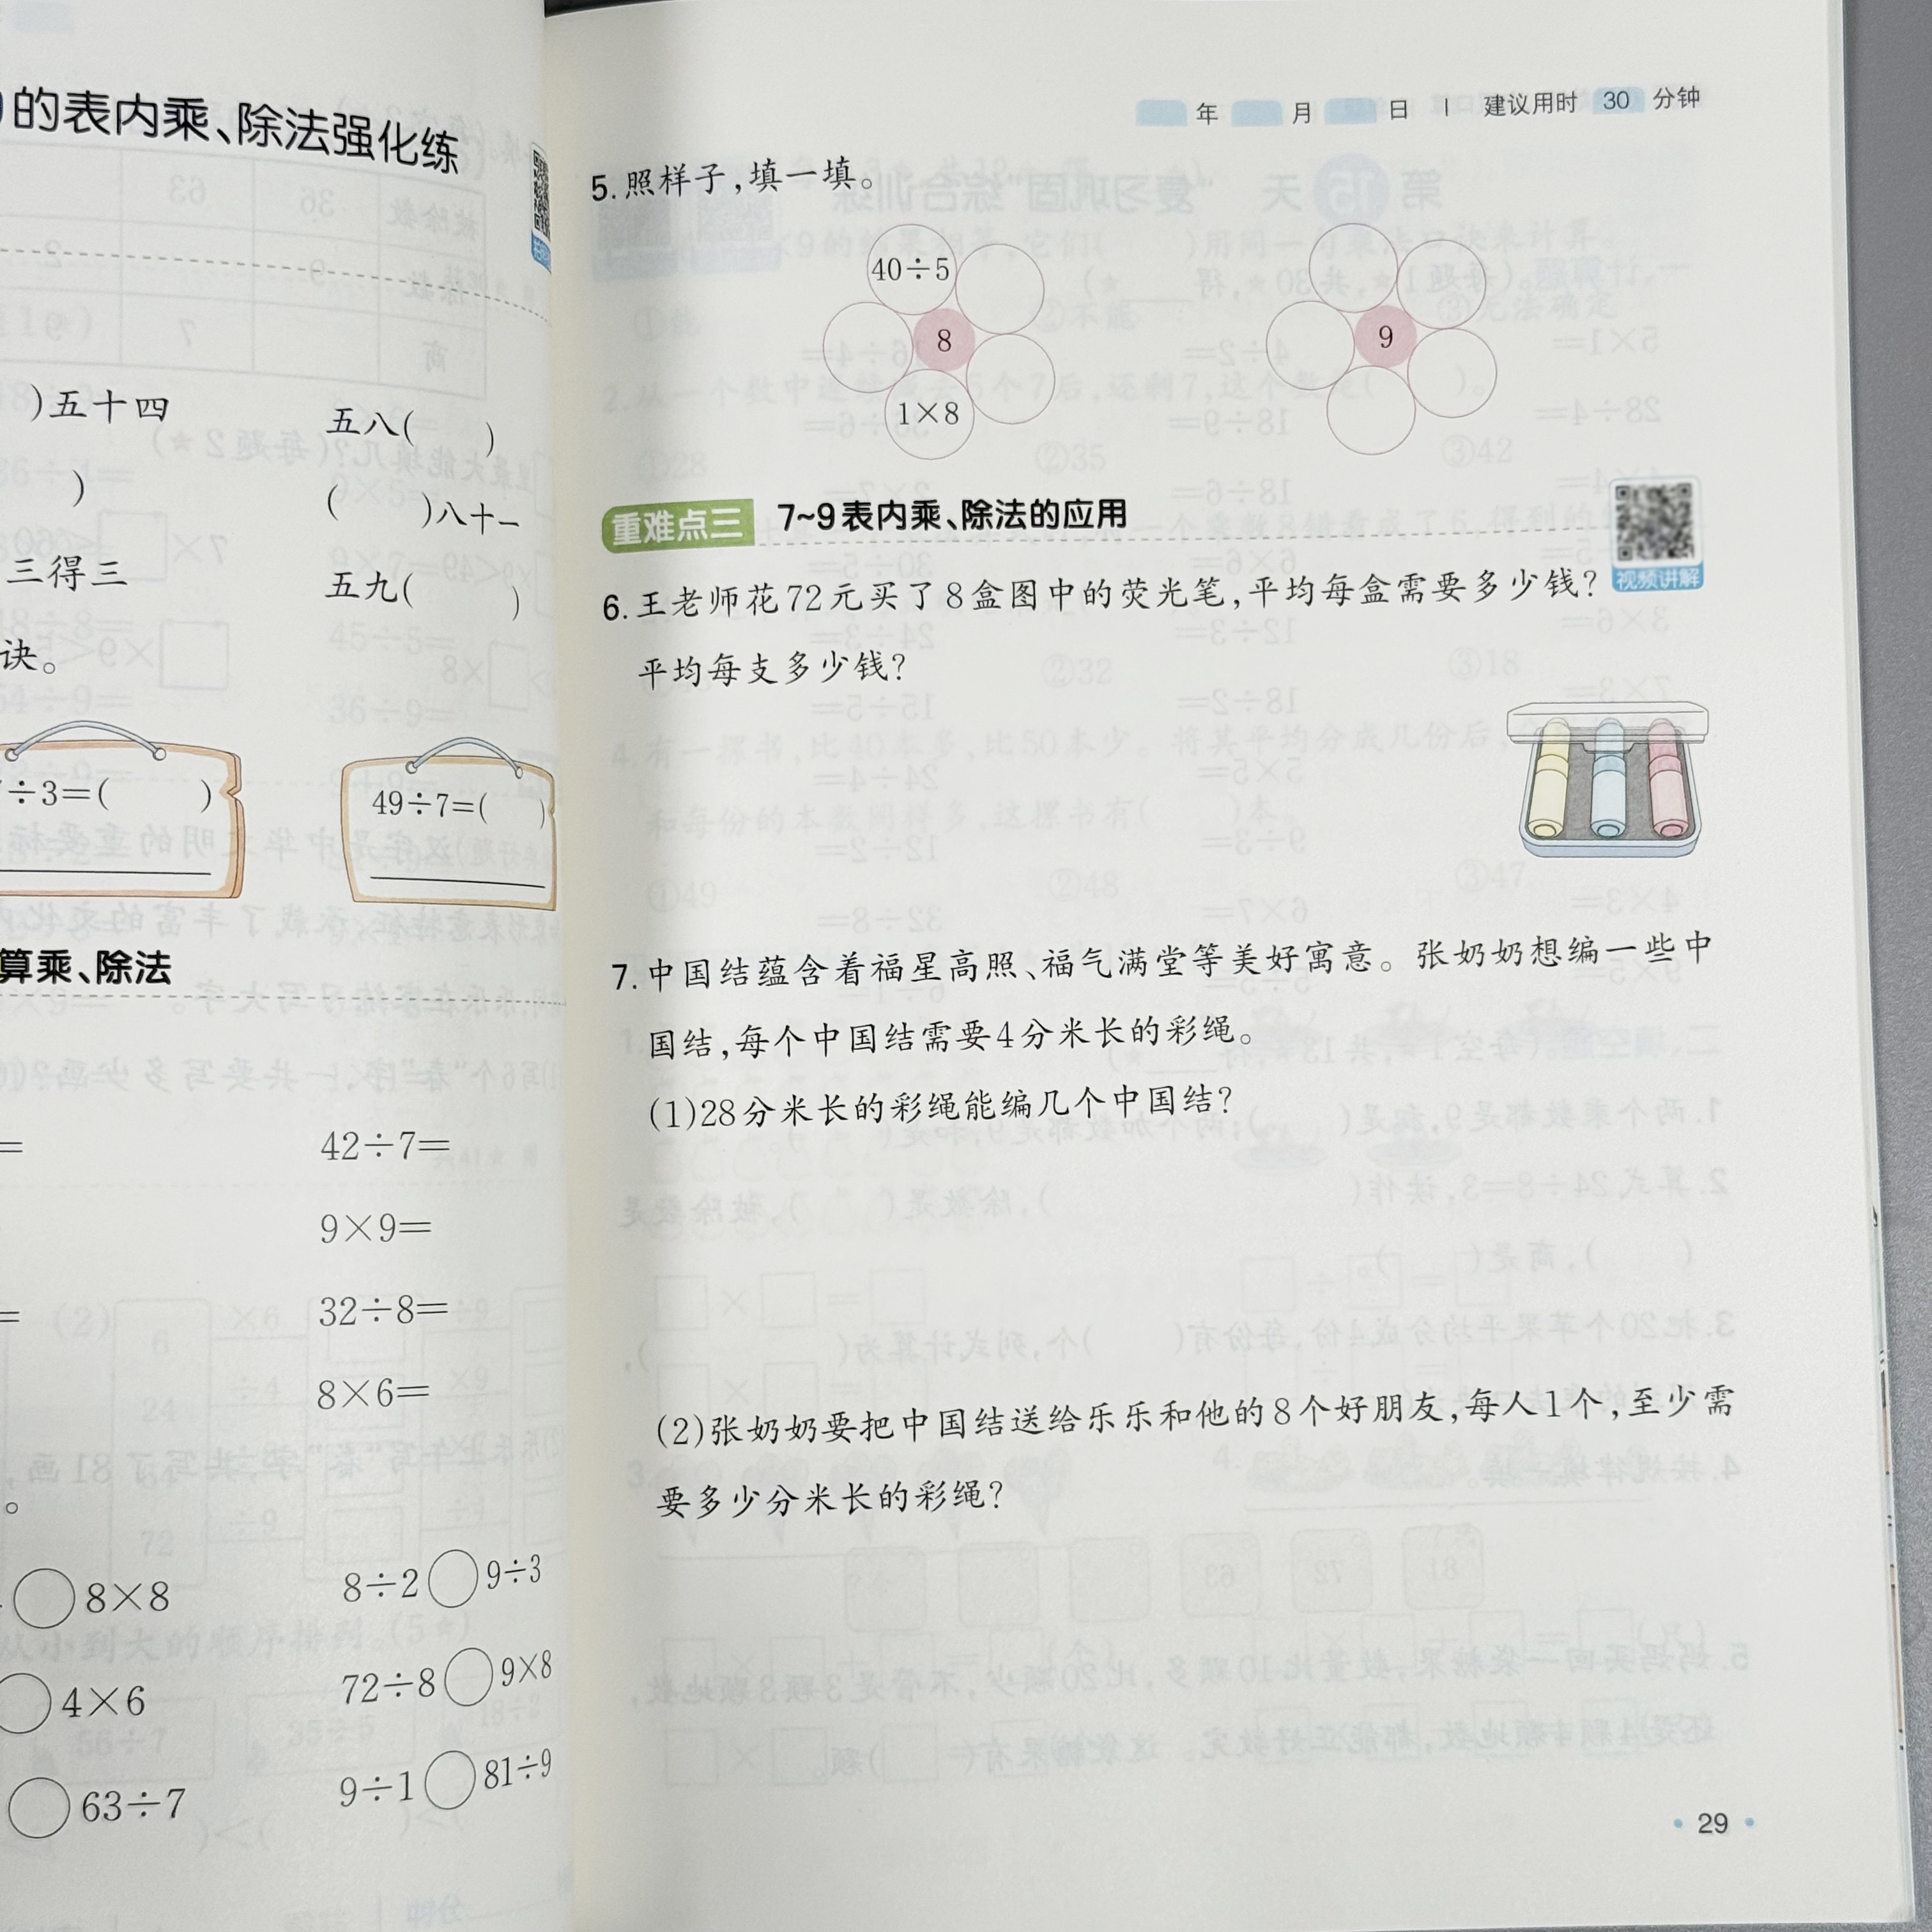 的表内乘、除法强化练
)五十四
五八(　　)
)
(　　)八十一
三得三
五九(　　)
诀。
÷3=(　　)
49÷7=(　　)
算乘、除法
=
42÷7=
9×9=
=
32÷8=
8×6=
。
○8×8
8÷2○9÷3
○4×6
72÷8○9×8
○63÷7
9÷1○81÷9
年　月　日 | 建议用时 30 分钟
5.照样子,填一填。
40÷5
8
1×8
9
重难点三 7~9表内乘、除法的应用
视频讲解
6.王老师花72元买了8盒图中的荧光笔,平均每盒需要多少钱?
平均每支多少钱?
7.中国结蕴含着福星高照、福气满堂等美好寓意。张奶奶想编一些中
国结,每个中国结需要4分米长的彩绳。
(1)28分米长的彩绳能编几个中国结?
(2)张奶奶要把中国结送给乐乐和他的8个好朋友,每人1个,至少需
要多少分米长的彩绳?
·29·